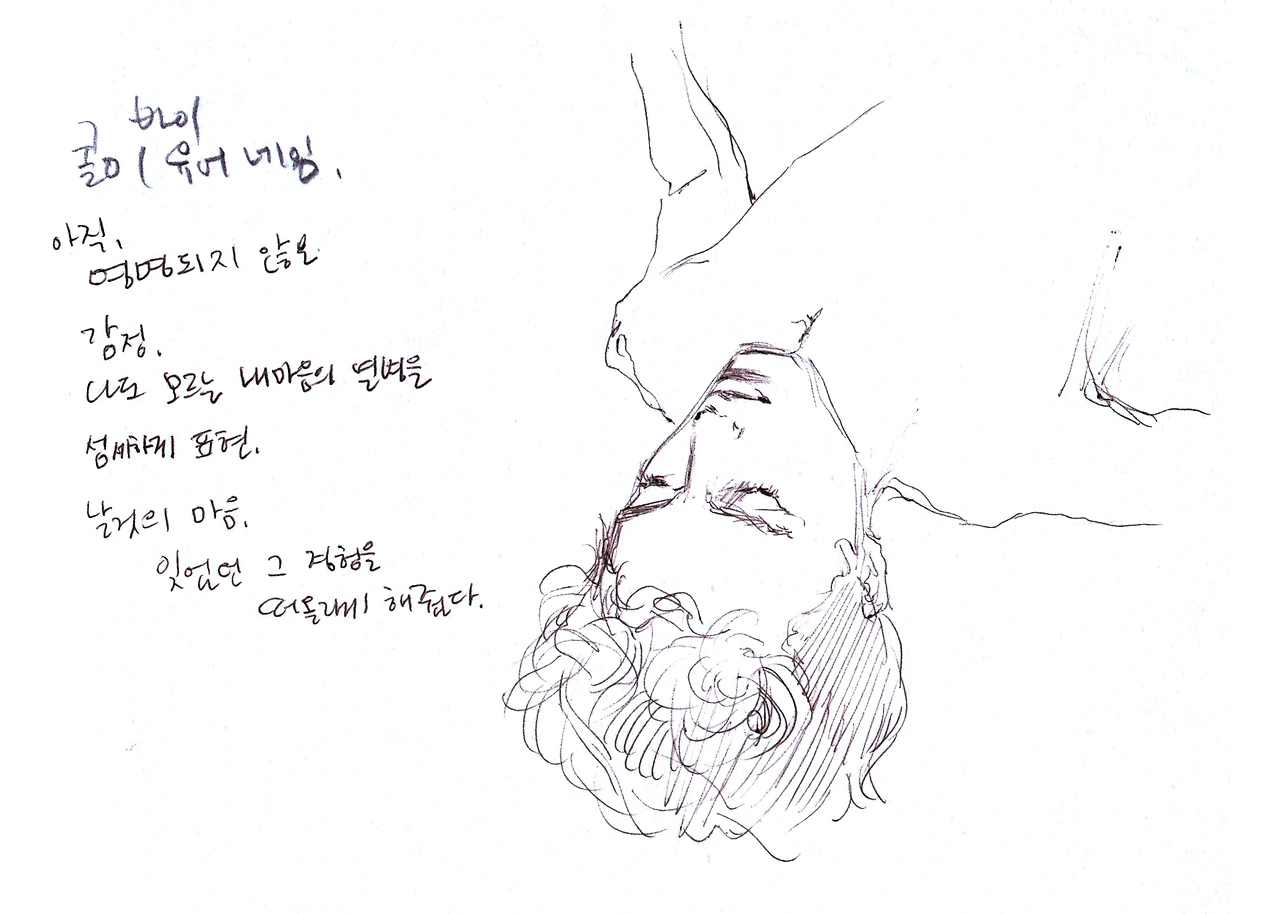 바이
콜미 유어 네임.
아직,
명명되지 않은
감정.
나도 모르는 내마음의 열병을
섬세하게 표현.
날것의 마음.
잊었던 그 경험을
떠올리게 해줬다.